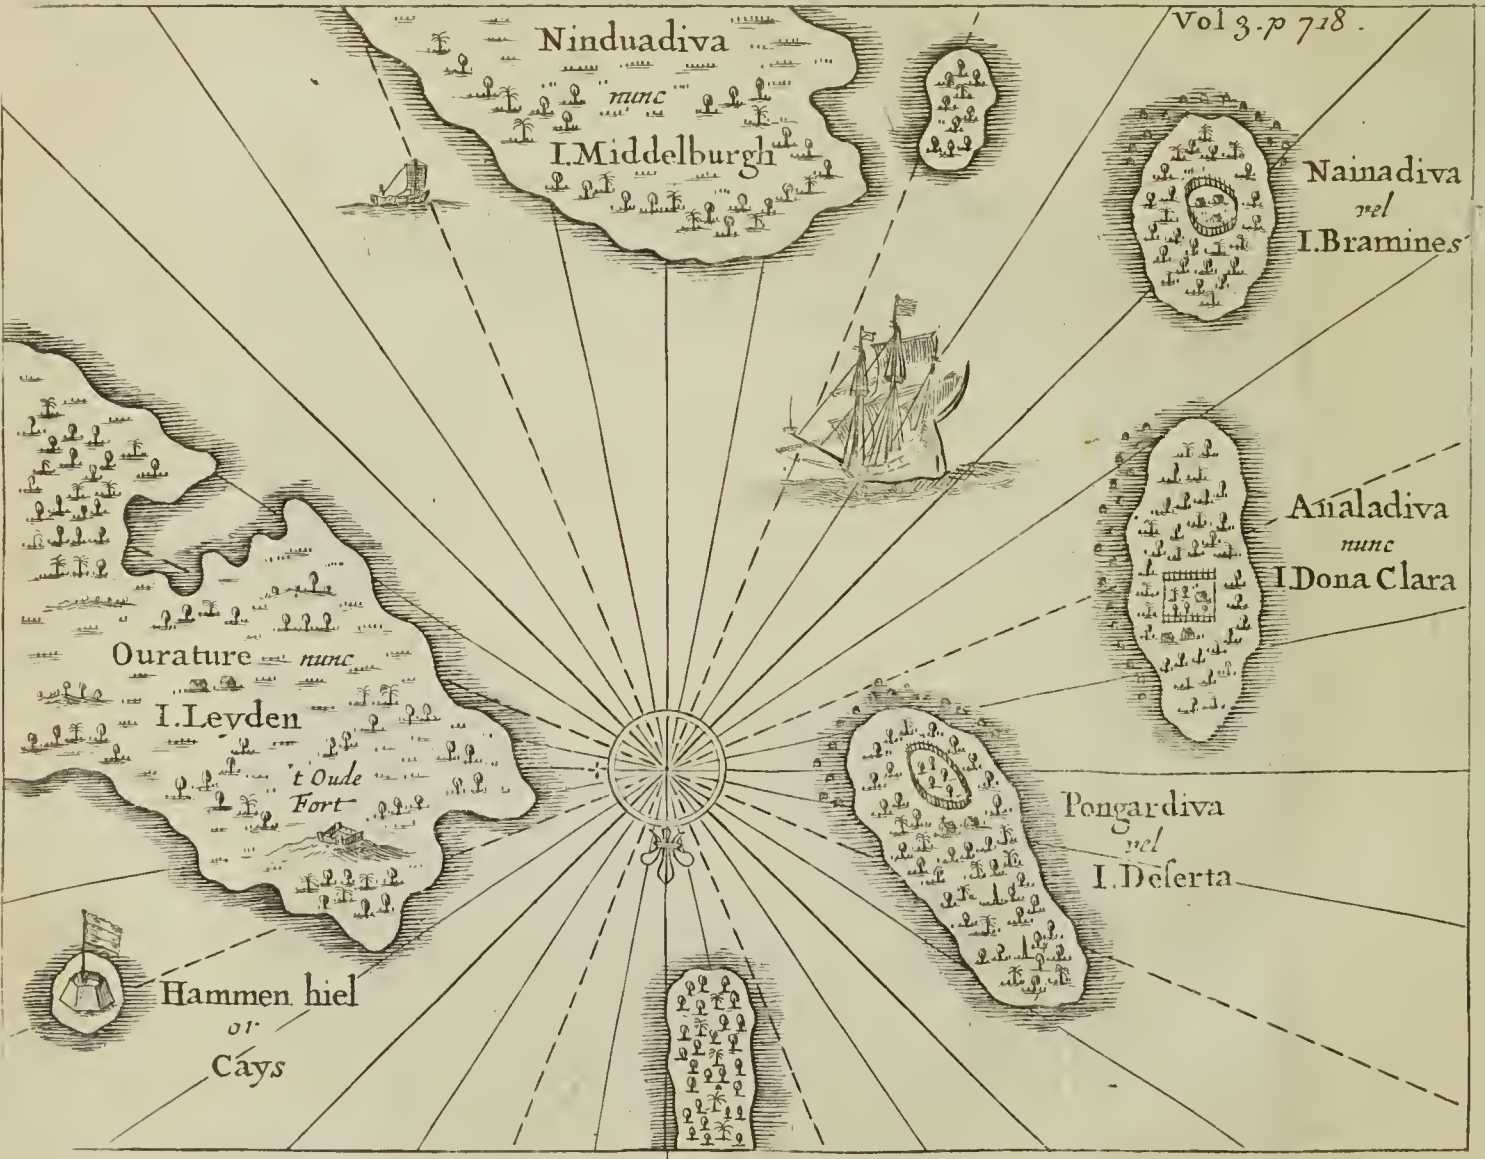 Vol 3. p 718.
Ninduadiva
nunc
I. Middelburgh
Nainadiva
vel
I. Bramines
Analadiva
nunc
I. Dona Clara
Ourature nunc
I. Leyden
't Oude
Fort
Pongardiva
vel
I. Deserta
Hammen hiel
or
Cays